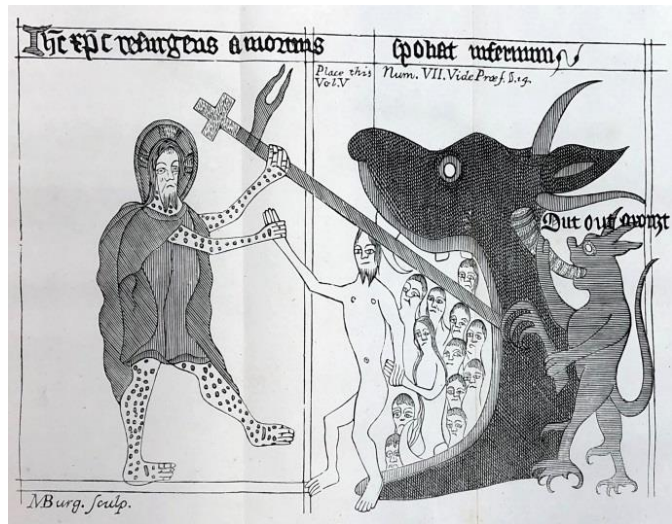 Ihc xp̄c resurgens a mortuis spoliat infernum
Place this Num. VII. Vide Præf. §. 14.
Vol. V
Out out arongt
MBurg. ſculp.